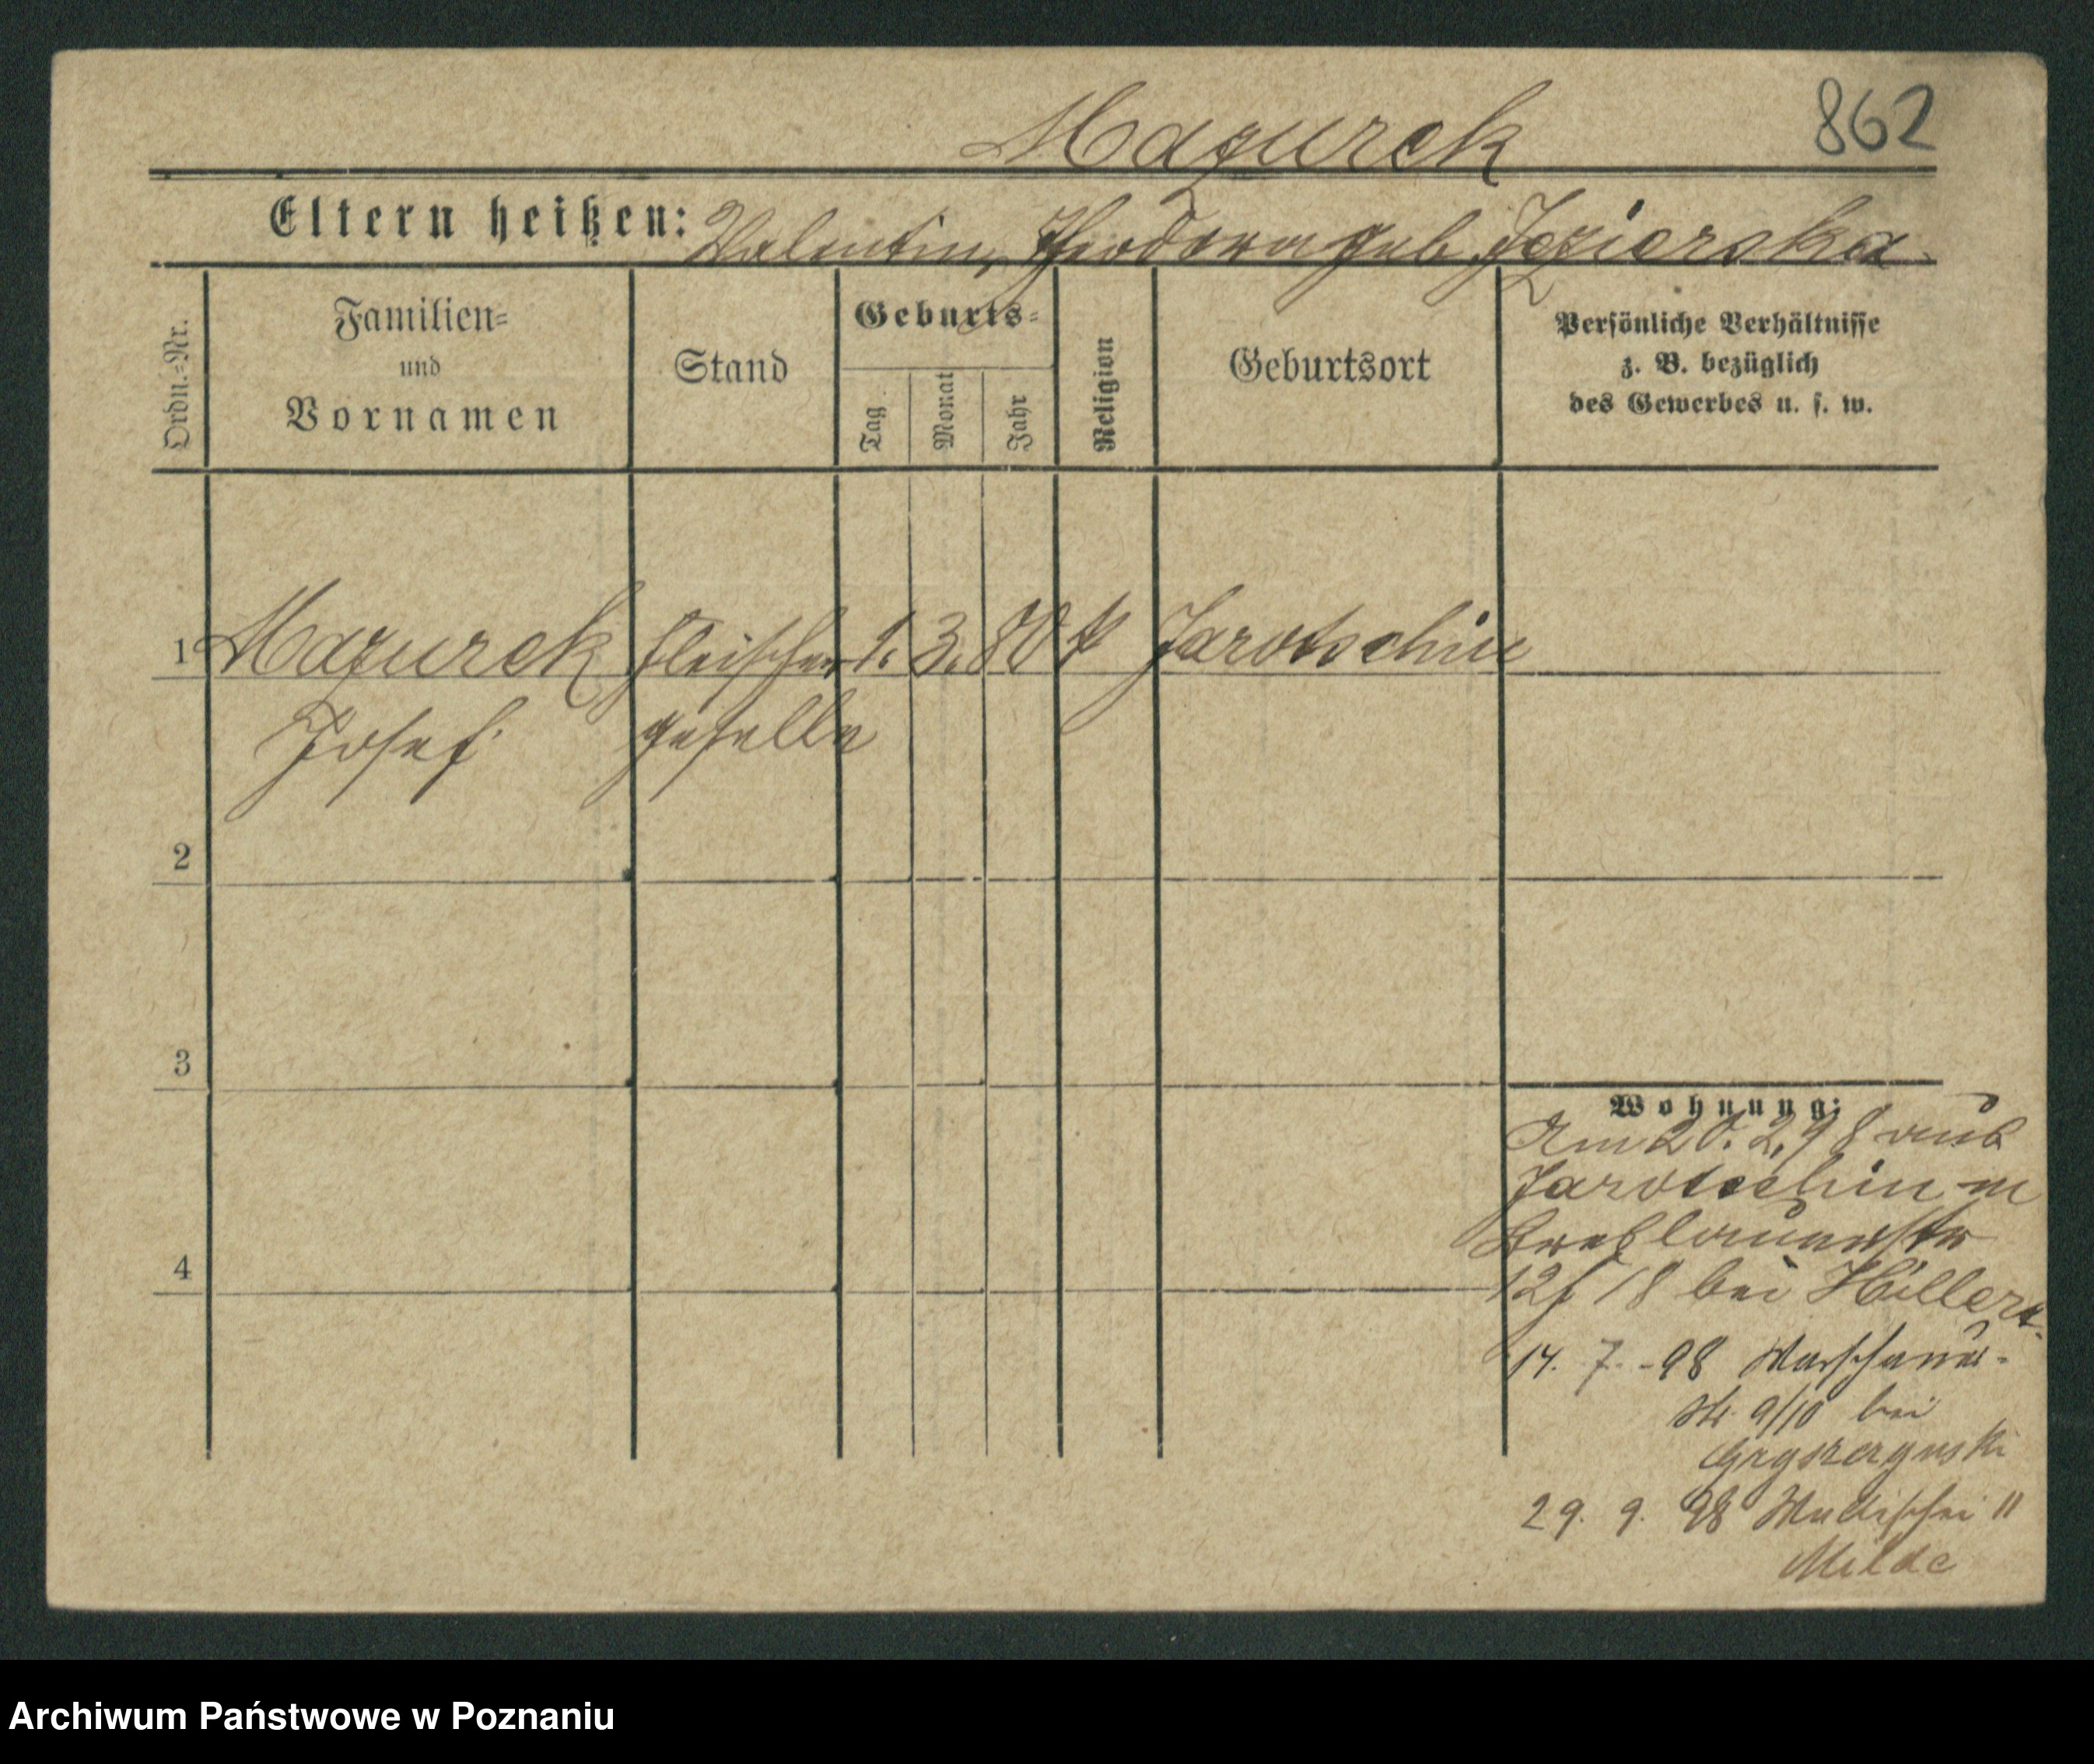 Mazurek 862
Eltern heißen: Valentin, Theodora geb. Jezierska
Ordn.=Nr.
Familien=
und
Vornamen
Stand
Geburts=
Tag
Monat
Jahr
Religion
Geburtsort
Persönliche Verhältnisse
z. B. bezüglich
des Gewerbes u. s. w.
1 Mazurek Fleischer 1. 3. 80 k Jarotschin
Josef geselle
2
3
4
Wohnung:
Am 20. 2. 98 aus
Jarotschin n
Breslauerstr
12/ 18 bei
14. 7. -98 Warschauer-
str. 9/10 bei
29. 9. 98 11
Milde
Archiwum Państwowe w Poznaniu